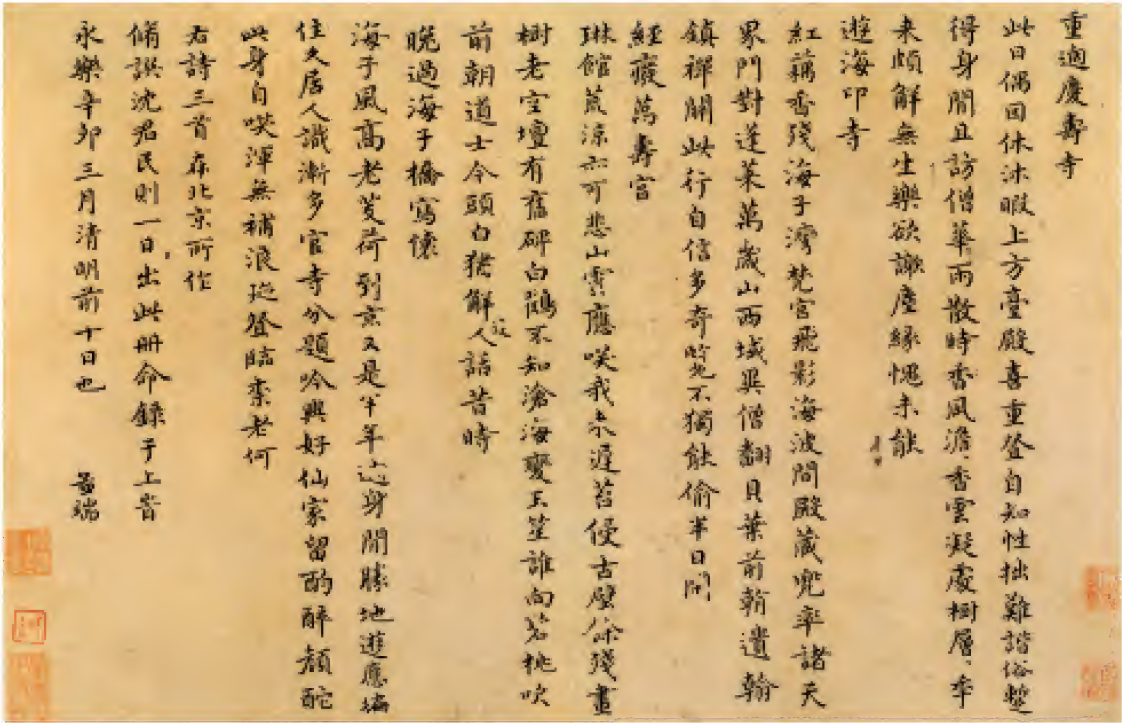 重過慶壽寺
此日偶因休沐暇上方臺殿喜重登自知性拙難諧俗整
得身閒且訪僧華雨散時香風澹香雲凝處樹層年
來頗解無生樂欲謝塵緣愧未能
遊海印寺
紅藕香殘海子灣梵宮飛影海波間殿藏兜率諸天
界門對蓬萊萬歲山西域異僧翻貝葉前翰遺翰
鎮禪關此行自信多奇覽不獨能偷半日閒
經廢萬壽宮
琳館荒涼亦可悲山雲應咲我來遲苔侵古壁餘殘畫
樹老空壇有舊碑白鶴不知滄海變玉笙誰向碧桃吹
前朝道士今頭白猶解人話昔時
晚過海子橋寫懷
海子風高老芰荷到京又是半年過身閒勝地遊應遍
住久居人識漸多官寺分題吟興好仙家留酌醉顏酡
此身自咲渾無補浪跡登臨柰老何
右詩三首在北京所作
脩譔沈君民則一日出此冊命錄于上皆
永樂辛卯三月清明前十日也
孟端